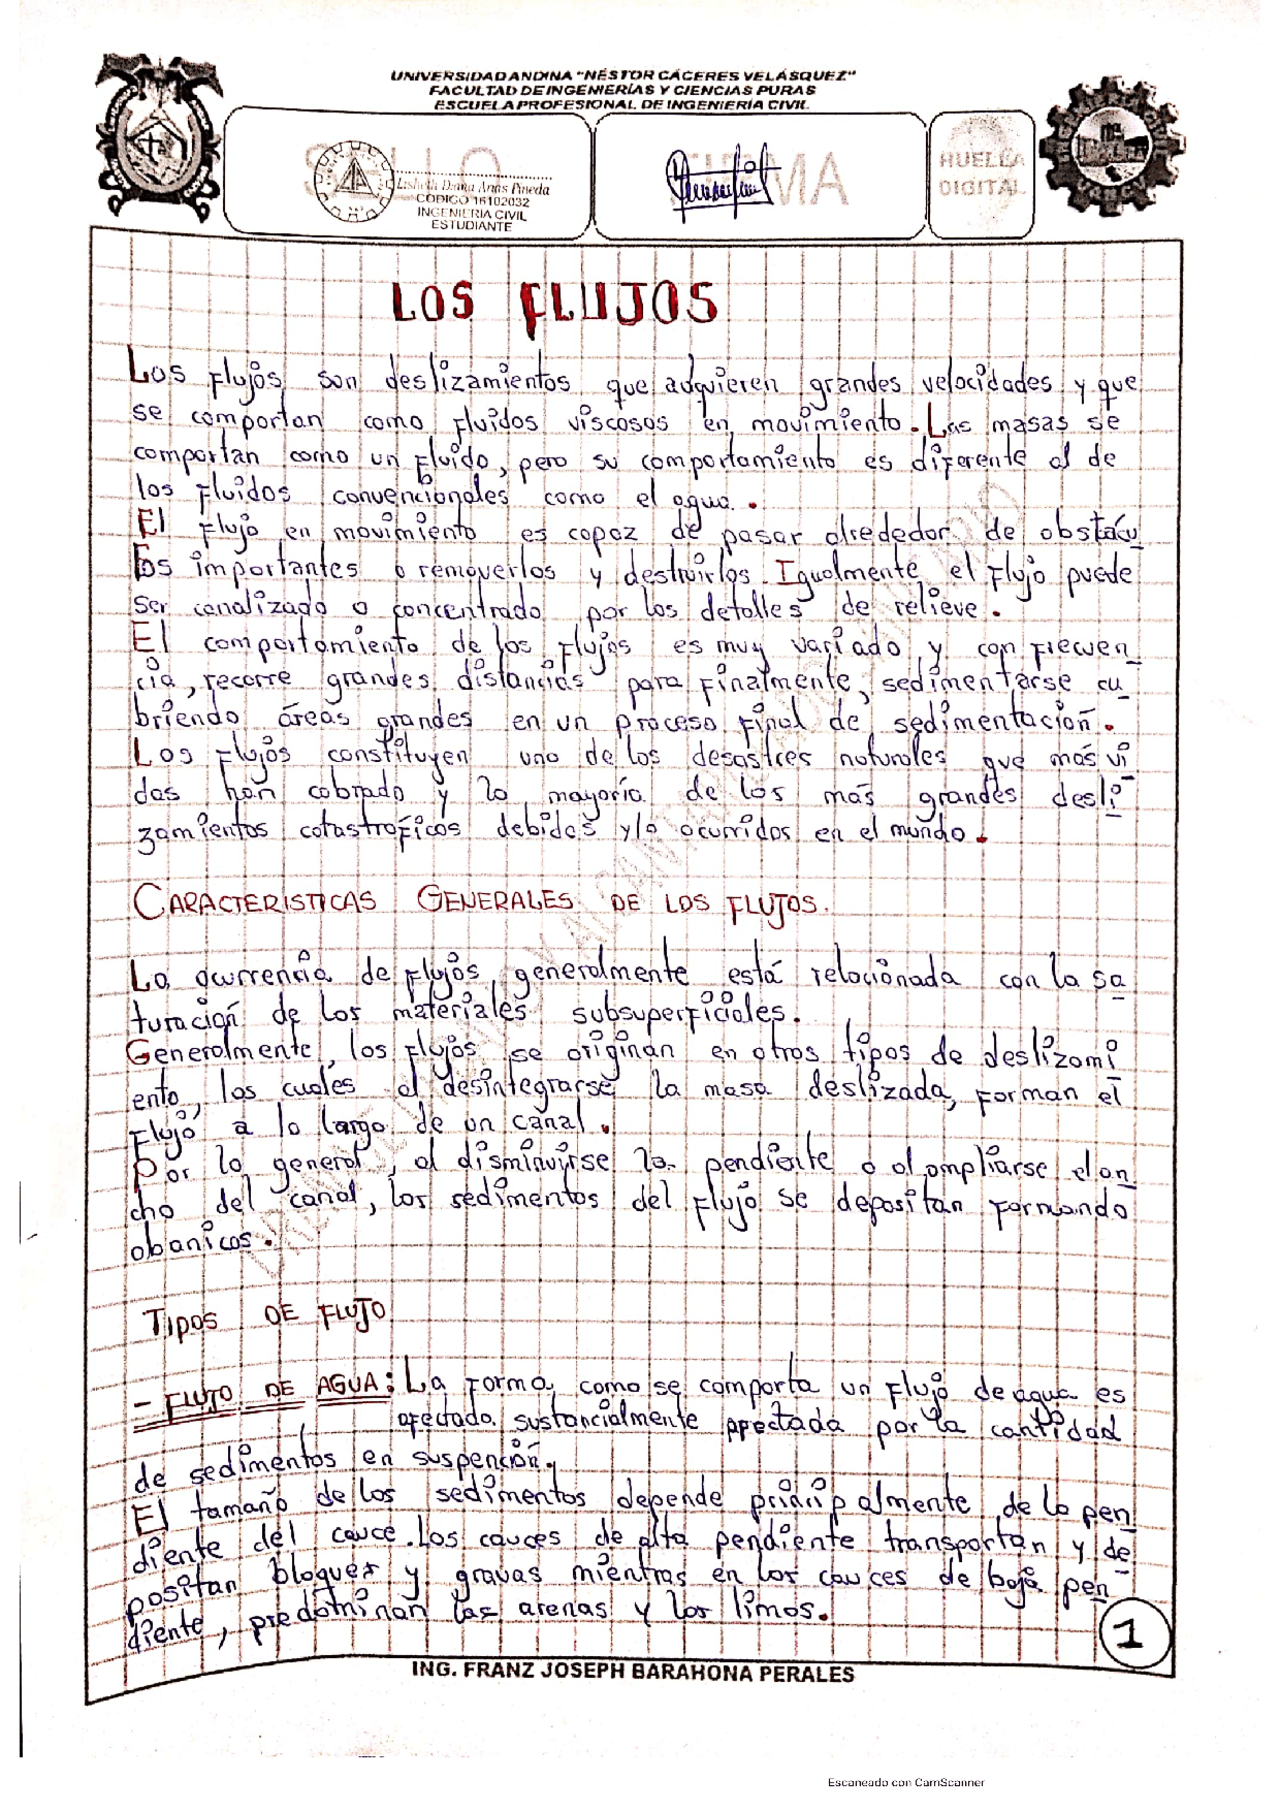 UNIVERSIDAD ANDINA "NÉSTOR CÁCERES VELÁSQUEZ"
FACULTAD DE INGENIERÍAS Y CIENCIAS PURAS
ESCUELA PROFESIONAL DE INGENIERÍA CIVIL
SELLO
Lisbeth Diana Arias Pineda
CODIGO 16102032
INGENIERIA CIVIL
ESTUDIANTE
FIRMA
HUELLA
DIGITAL
LOS FLUJOS
Los flujos son deslizamientos que adquieren grandes velocidades y que
se comportan como fluidos viscosos en movimiento. Las masas se
comportan como un fluido, pero su comportamiento es diferente al de
los fluidos convencionales como el agua.
El flujo en movimiento es capaz de pasar alrededor de obstácu
los importantes o removerlos y destruirlos. Igualmente el flujo puede
ser canalizado o concentrado por los detalles de relieve.
El comportamiento de los flujos es muy variado y con frecuen
cia, recorre grandes distancias para finalmente, sedimentarse cu
briendo áreas grandes en un proceso final de sedimentación.
Los flujos constituyen uno de los desastres naturales que más vi
das han cobrado y la mayoría de los más grandes desli
zamientos catastróficos debidas y/o ocurridos en el mundo.
CARACTERISTICAS GENERALES DE LOS FLUJOS.
La ocurrencia de flujos generalmente está relacionada con la sa
turación de los materiales subsuperficiales.
Generalmente, los flujos se originan en otros tipos de deslizami
ento, los cuales al desintegrarse la masa deslizada, forman el
flujo a lo largo de un canal.
Por lo general, al disminuirse la pendiente o al ampliarse el an
cho del canal, los sedimentos del flujo se depositan formando
abanicos.
TIPOS DE FLUJO
- FLUJO DE AGUA: La forma como se comporta un flujo de agua es
afectado sustancialmente afectada por la cantidad
de sedimentos en suspención.
El tamaño de los sedimentos depende principalmente de la pen
diente del cauce. Los cauces de alta pendiente transportan y de
positan bloques y gravas mientras en los cauces de baja pen
diente, predominan las arenas y los limos.
1
ING. FRANZ JOSEPH BARAHONA PERALES
Escaneado con CamScanner